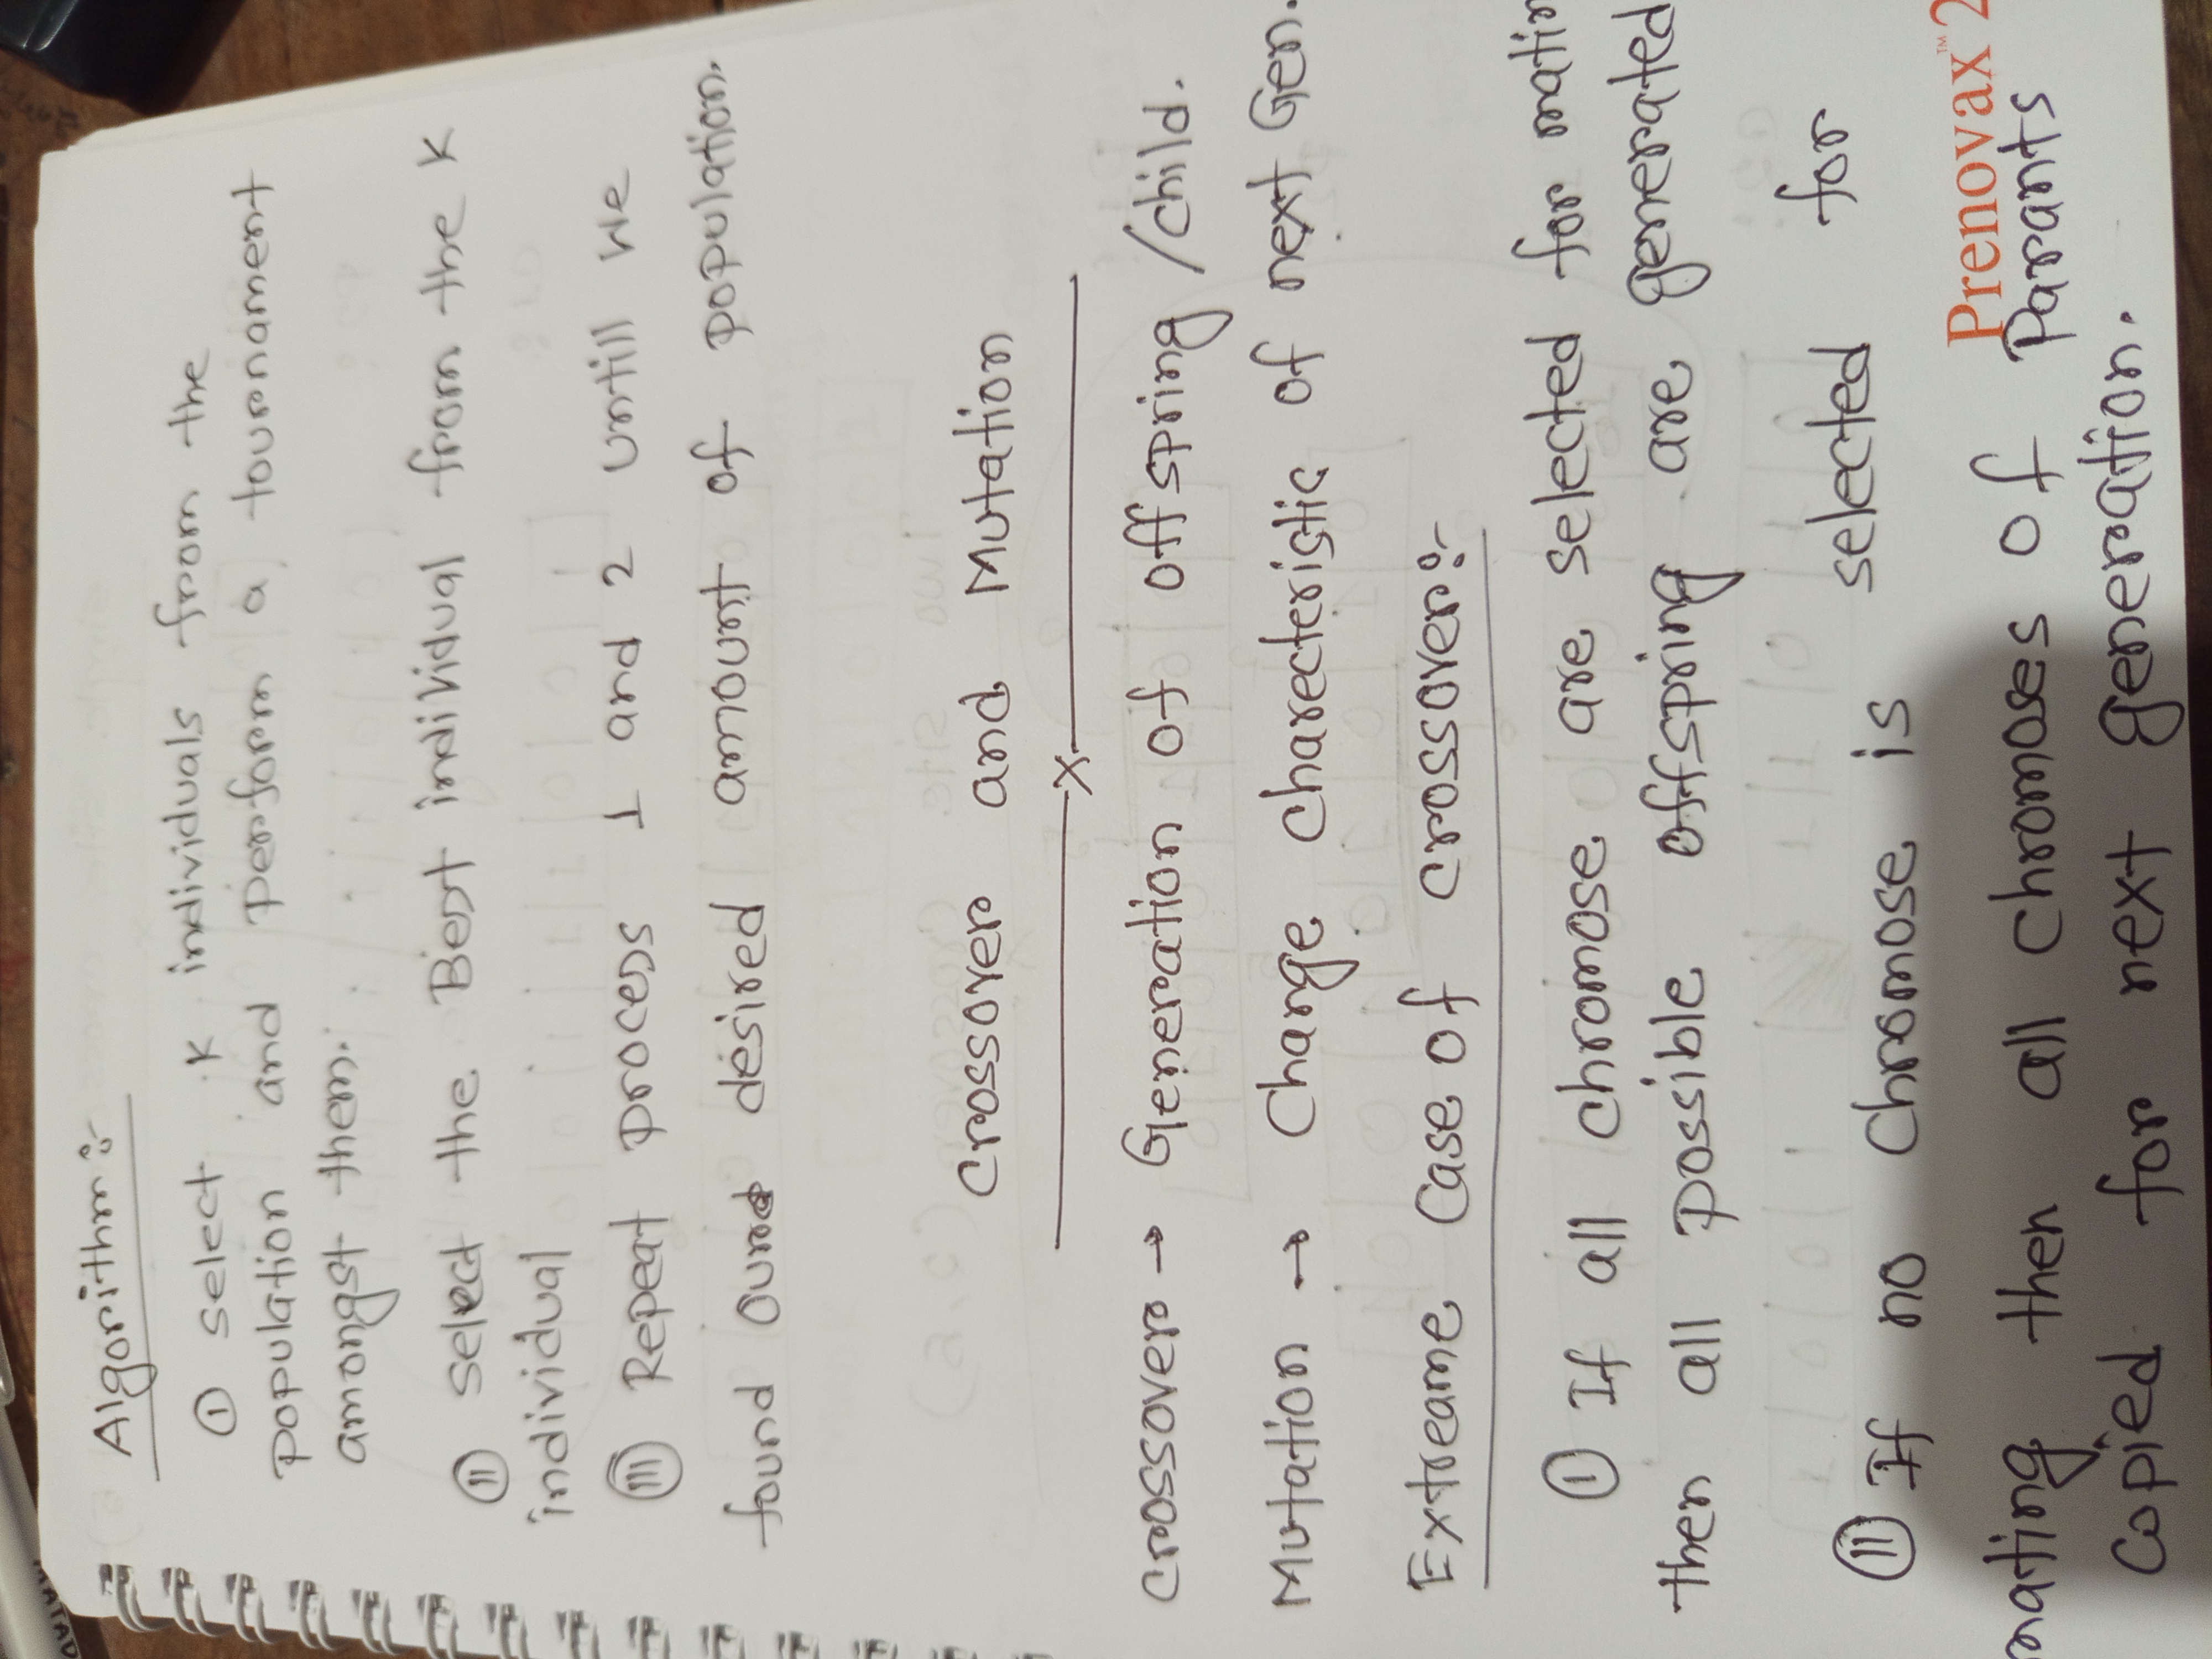 Algorithm :-
① select K individuals from the
population and perform a tournament
amongst them.
② select the Best individual from the K
individual
③ Repeat process 1 and 2 untill we
found our desired amount of population.
Crossover and Mutation
x
Crossover → Generation of offspring /child.
Mutation → Change charecteristic of next Gen.
Extreame Case of crossover:-
① If all chromose are selected for matin
then all possible offspring are generated
② If no Chromose is selected for
Prenovax™ 2
mating then all chromoses of Parants
copied for next generation.